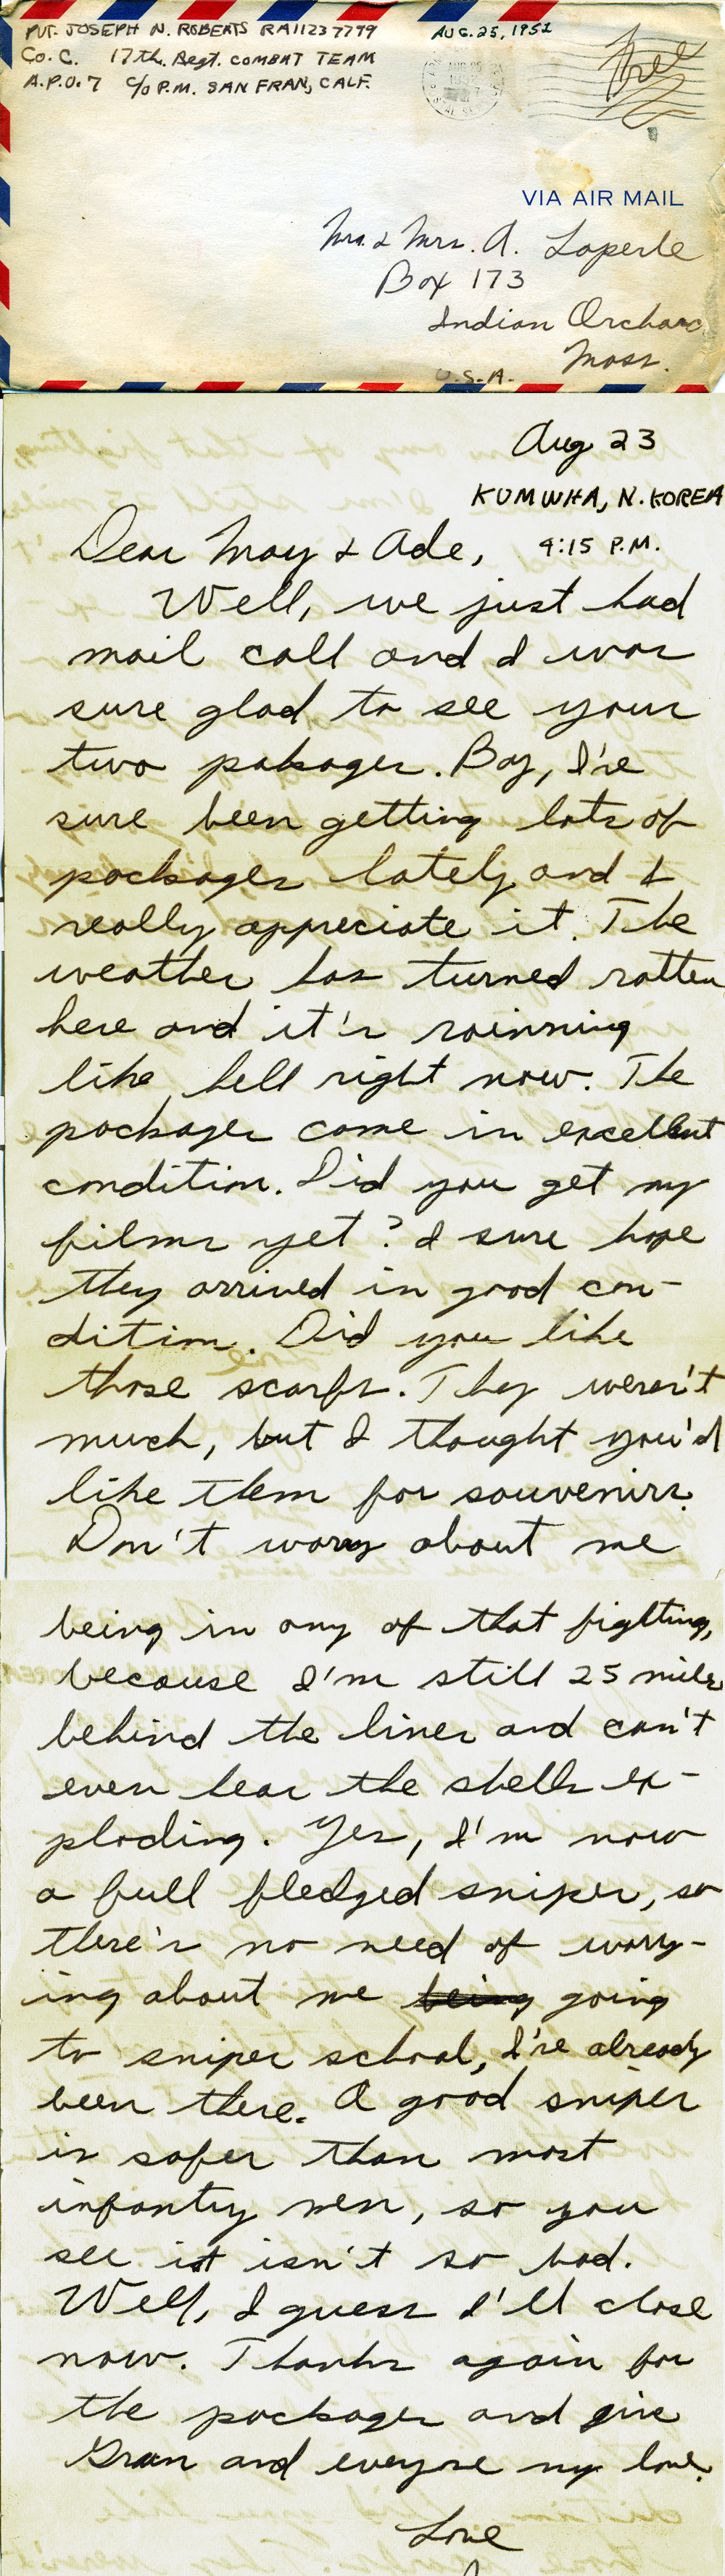 PVT. JOSEPH N. ROBERTS RA11237799
Co. C. 17th. Regt. COMBAT TEAM
A.P.O. 7 C/o P.M. SAN FRAN, CALF.
AUG. 25, 1951
Free
VIA AIR MAIL
Mr. & Mrs. A. Laperle
Box 173
Indian Orchard
Mass.
U.S.A.
Aug 23
KUMWHA, N. KOREA
4:15 P.M.
Dear May & Ade,
Well, we just had
mail call and I was
sure glad to see your
two pakages. Boy, I've
sure been getting lots of
packages lately and I
really appreciate it. The
weather has turned rotten
here and it's rainning
like hell right now. The
packages came in excellent
condition. Did you get my
films yet? I sure hope
they arrived in good con-
dition. Did you like
those scarfs. They weren't
much, but I thought you'd
like them for souvenirs.
Don't worry about me
being in any of that fighting,
because I'm still 25 miles
behind the lines and can't
even hear the shells ex-
ploding. Yes, I'm now
a full fledged sniper, so
there's no need of worry-
ing about me being going
to sniper school, I've already
been there. A good sniper
is safer than most
infantry men, so you
see it isn't so bad.
Well, I guess I'll close
now. Thanks again for
the packages and give
Gram and everyone my love.
Love